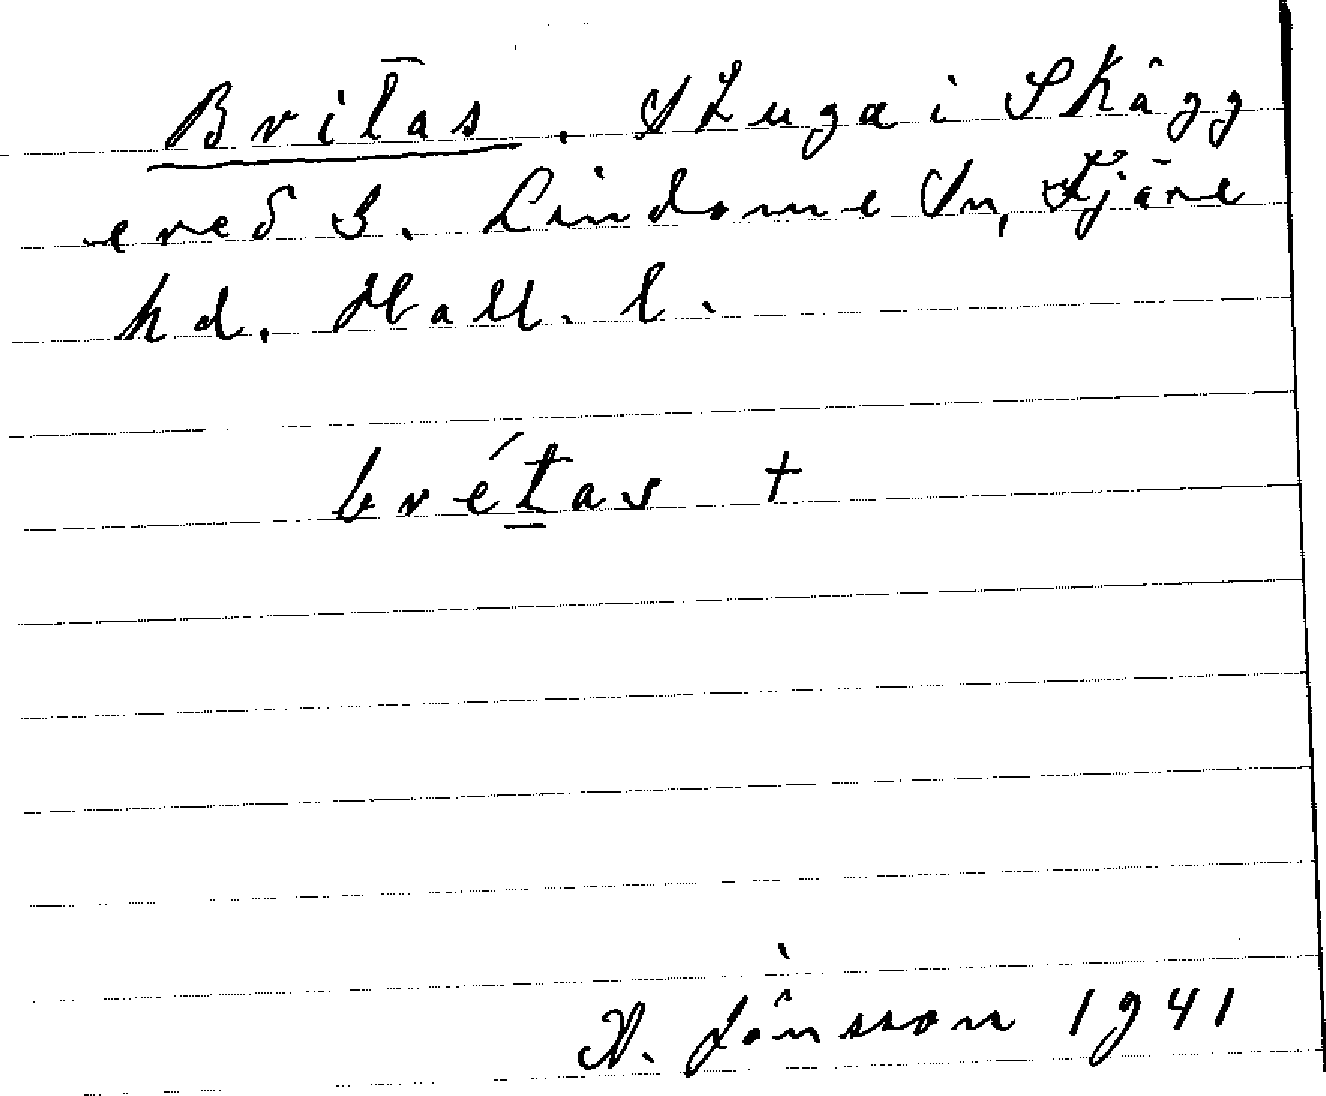 Britas. Stuga i Skägg
ered S. Lindome Sn, Fjäre
hd. Hall. l.
brétas +
A. Jönsson 1941